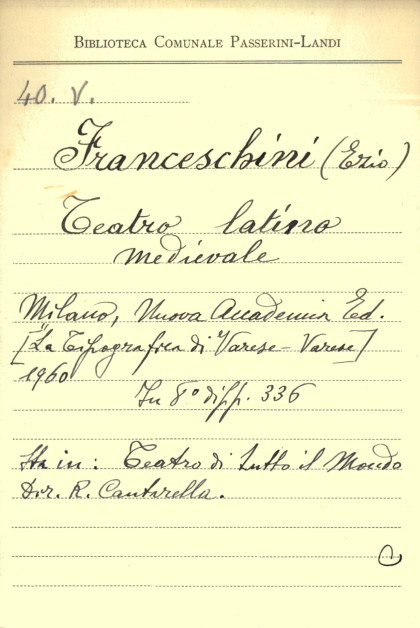 BIBLIOTECA COMUNALE PASSERINI-LANDI
40. V.
Franceschini (Ezio)
Teatro latino
medievale
Milano, Nuova Accademia Ed.
[La Tipografica di Varese - Varese]
1960
In 8° di pp. 336
Sta in: Teatro di tutto il Mondo
Dir. R. Cantarella.